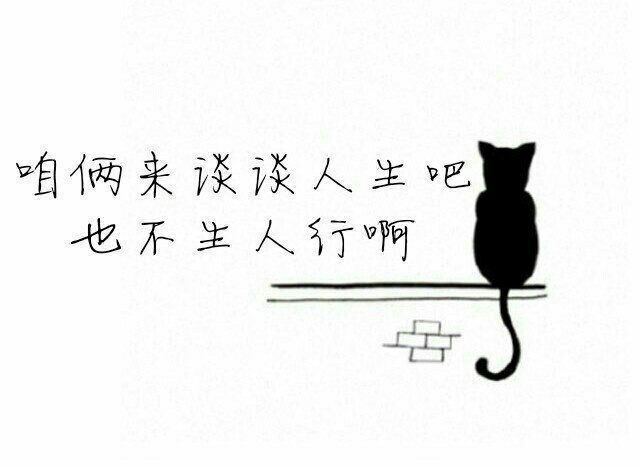 咱俩来谈谈人生吧
也不生人行啊